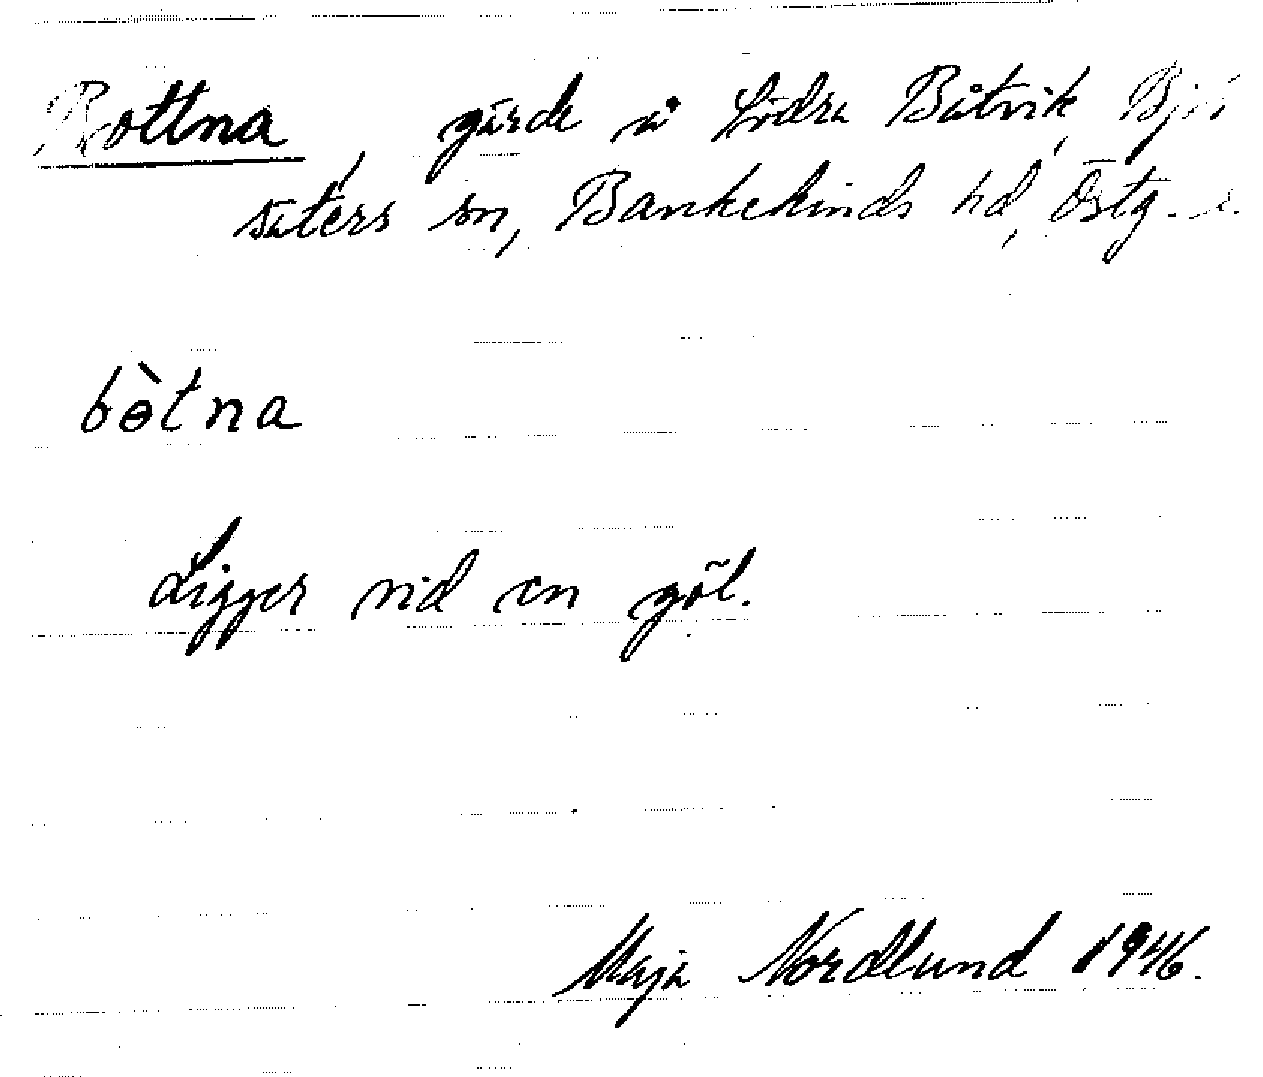 Bottna, gärde å Södra Båtvik, Bjö
säters sn, Bankekinds hd, Östg. l.
bɵ̀tna
Ligger vid en göl.
Maja Nordlund 1946.